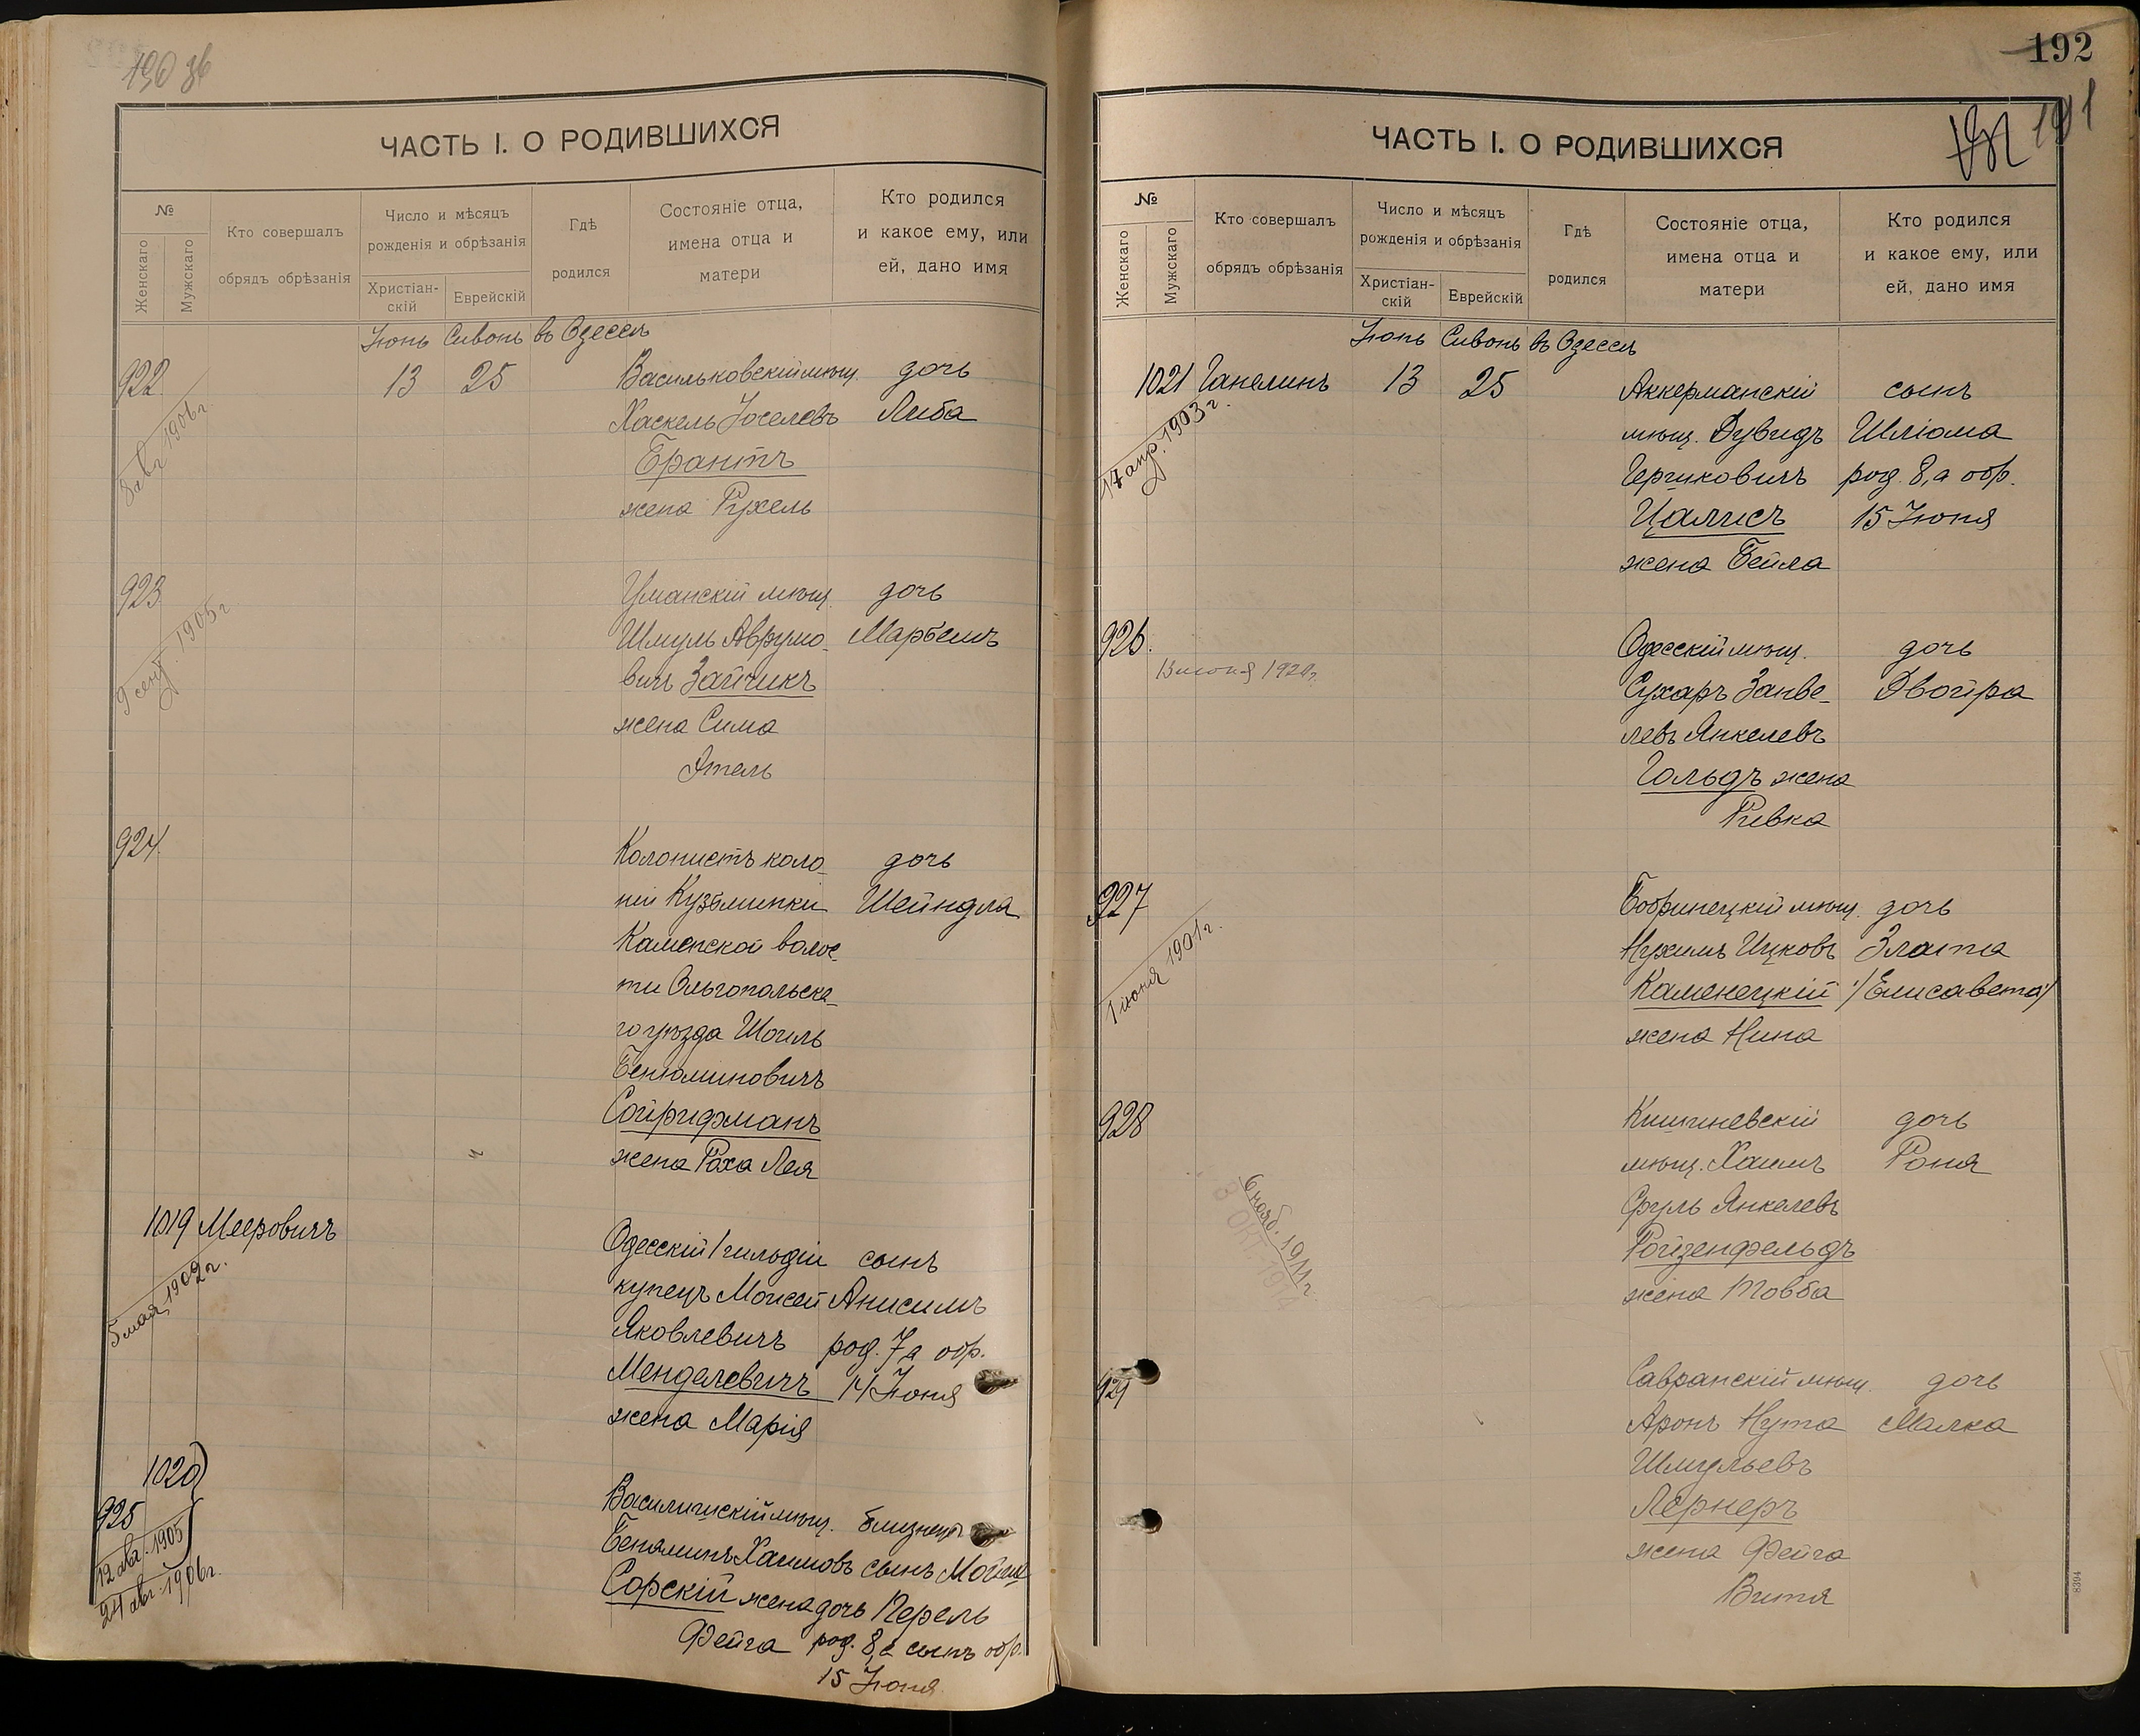 190 об
ЧАСТЬ I. О РОДИВШИХСЯ
№
Женскаго
Мужскаго
Кто совершалъ
обрядъ обрѣзанія
Число и мѣсяцъ
рожденія и обрѣзанія
Христіан-
скій
Еврейскій
Гдѣ
родился
Состояніе отца,
имена отца и
матери
Кто родился
и какое ему, или
ей, дано имя
Іюнь Сивонь въ Одессѣ
922. 13 25 Васильковскій мѣщ. дочь
8 авг 1906 г.
Хаскель Іоселевъ Либа
Брантъ
жена Рухель
923. Уманскій мѣщ. дочь
9 сент. 1905 г
Шмуль Аврумо- Марбемъ
вичъ Зайчикъ
жена Сима
Этель
924. Колонистъ коло- дочь
ніи Кузьминки Шейндла
Каменской волос-
ти Ольгопольска-
го уѣзда Шоиль
Бенюминовичъ
Сойрифманъ
жена Роха Лея
1019 Мееровичъ
5 мая 1902 г.
Одесскій 1 гильдіи сынъ
купецъ Моисей Анисимъ
Яковлевичъ род. 7, а обр.
Менделевичъ 14 Іюня
жена Марія
1020
925
12 авг. 1905
24 авг. 1906 г.
Василишскій мѣщ. близнецы
Бенаминъ Хаимовъ сынъ Мойше
Сорскій жена дочь Перель
Фейга род. 8, а сынъ обр.
15 Іюня
192
191
ЧАСТЬ I. О РОДИВШИХСЯ
№
Женскаго
Мужскаго
Кто совершалъ
обрядъ обрѣзанія
Число и мѣсяцъ
рожденія и обрѣзанія
Христіан-
скій
Еврейскій
Гдѣ
родился
Состояніе отца,
имена отца и
матери
Кто родился
и какое ему, или
ей, дано имя
Іюнь Сивонь въ Одессѣ
1021 Ганелинъ 13 25 Аккерманскій сынъ
17 апр. 1903 г.
мѣщ. Дувидъ Шліома
Гершковичъ род. 8, а обр.
Цалисъ 15 Іюня
жена Бейла
926. Одесскій мѣщ. дочь
13 июня 1920 г.
Сухаръ Занве- Двойра
левъ Янкелевъ
Гольдъ жена
Ривка
927 Бобринецкій мѣщ. дочь
1 іюня 1901 г.
Нухимъ Ицковъ Злата
Каменецкій /Елисавета/
жена Нина
928 Кишиневскій дочь
6 нояб. 1911 г.
мѣщ. Хаимъ Роня
Сруль Янкелевъ
Ройзенфельдъ
жена Товба
929 Савранскій мѣщ. дочь
Аронъ Нута Малка
Шмульевъ
Лернеръ
жена Фейга
Витя
8394